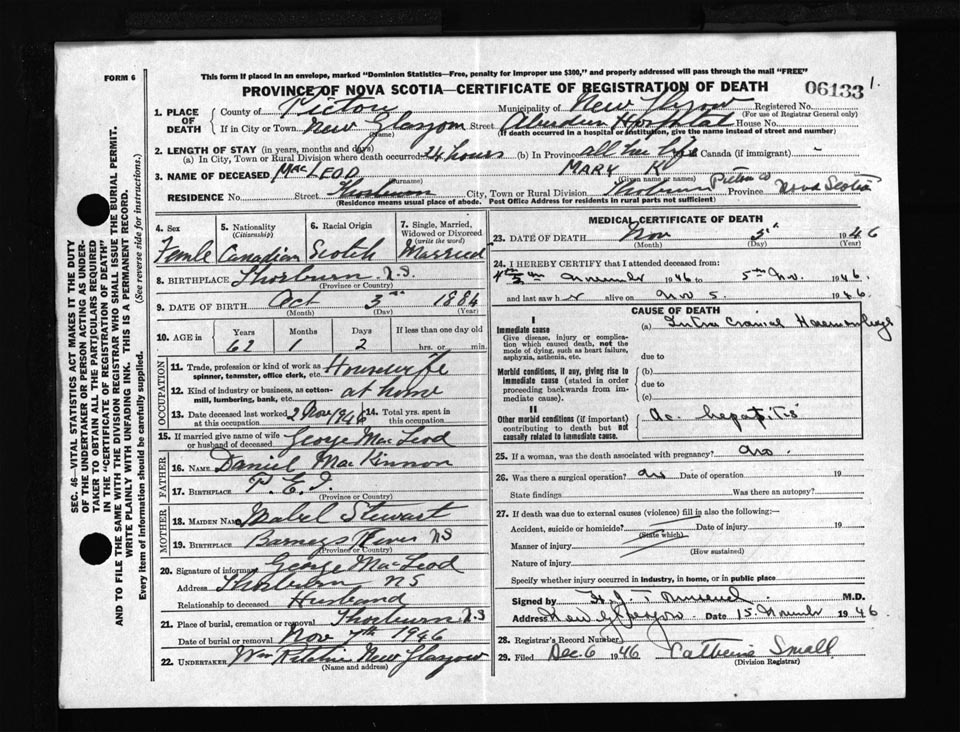 FORM 6
This form if placed in an envelope, marked "Dominion Statistics—Free, penalty for improper use $300," and properly addressed will pass through the mail "FREE"
PROVINCE OF NOVA SCOTIA—CERTIFICATE OF REGISTRATION OF DEATH
06133
1.
1. PLACE OF DEATH
County of Pictou Municipality of New Glasgow Registered No.
(For use of Registrar General only)
If in City or Town New Glasgow Street Aberdeen Hospital House No.
(Name) (If death occurred in a hospital or institution, give the name instead of street and number)
2. LENGTH OF STAY (in years, months and days)
(a) In City, Town or Rural Division where death occurred 24 hours (b) In Province all her life Canada (if immigrant)
3. NAME OF DECEASED MacLEOD MARY K
(Surname) (Given name or names)
RESIDENCE No. Street Thorburn City, Town or Rural Division Thorburn Pictou Co Province Nova Scotia
(Residence means usual place of abode. Post Office Address for residents in rural parts not sufficient)
4. Sex
Femle
5. Nationality
(Citizenship)
Canadian
6. Racial Origin
Scotch
7. Single, Married, Widowed or Divorced
(write the word)
Married
8. BIRTHPLACE Thorburn N.S.
(Province or Country)
9. DATE OF BIRTH Oct 3rd 1884
(Month) (Day) (Year)
10. AGE in
Years Months Days If less than one day old
62 1 2 hrs. or min.
OCCUPATION
11. Trade, profession or kind of work as spinner, teamster, office clerk, etc. Housewife
12. Kind of industry or business, as cotton-mill, lumbering, bank, etc. at home
13. Date deceased last worked at this occupation 2 Nov 1946
14. Total yrs. spent in this occupation
15. If married give name of wife or husband of deceased George MacLeod
FATHER
16. NAME Daniel MacKinnon
17. BIRTHPLACE P.E.I.
(Province or Country)
MOTHER
18. MAIDEN NAME Mabel Stewart
19. BIRTHPLACE Barneys River NS
(Province or Country)
20. Signature of informant George MacLeod
Address Thorburn NS
Relationship to deceased Husband
21. Place of burial, cremation or removal Thorburn N.S
Date of burial or removal Nov 7th 1946
22. UNDERTAKER Wm Ritchie New Glasgow
(Name and address)
MEDICAL CERTIFICATE OF DEATH
23. DATE OF DEATH Nov 5th 1946
(Month) (Day) (Year)
24. I HEREBY CERTIFY that I attended deceased from:
4th November 1946 to 5th Nov. 1946.
and last saw her alive on Nov 5. 1946
CAUSE OF DEATH
I
Immediate cause
Give disease, injury or complication which caused death, not the mode of dying, such as heart failure, asphyxia, asthenia, etc.
(a) Intra Cranial Haemorrhage
due to
Morbid conditions, if any, giving rise to immediate cause (stated in order proceeding backwards from immediate cause).
(b)
due to
(c)
II
Other morbid conditions (if important) contributing to death but not causally related to immediate cause.
Ac. hepatitis
25. If a woman, was the death associated with pregnancy? No.
26. Was there a surgical operation? No Date of operation 19
State findings Was there an autopsy?
27. If death was due to external causes (violence) fill in also the following:—
Accident, suicide or homicide? Date of injury 19
(State which)
Manner of injury
(How sustained)
Nature of injury
Specify whether injury occurred in industry, in home, or in public place
Signed by H. J. Townsend M.D.
Address New Glasgow. Date 15 November 1946
28. Registrar's Record Number
29. Filed Dec. 6 1946 Catherine Small
(Division Registrar)
SEC. 46—VITAL STATISTICS ACT MAKES IT THE DUTY
OF THE UNDERTAKER OR PERSON ACTING AS UNDER-
TAKER TO OBTAIN ALL THE PARTICULARS REQUIRED
IN THE "CERTIFICATE OF REGISTRATION OF DEATH"
AND TO FILE THE SAME WITH THE DIVISION REGISTRAR WHO SHALL ISSUE THE BURIAL PERMIT.
WRITE PLAINLY WITH UNFADING INK. THIS IS A PERMANENT RECORD.
Every item of information should be carefully supplied. (See reverse side for instructions.)